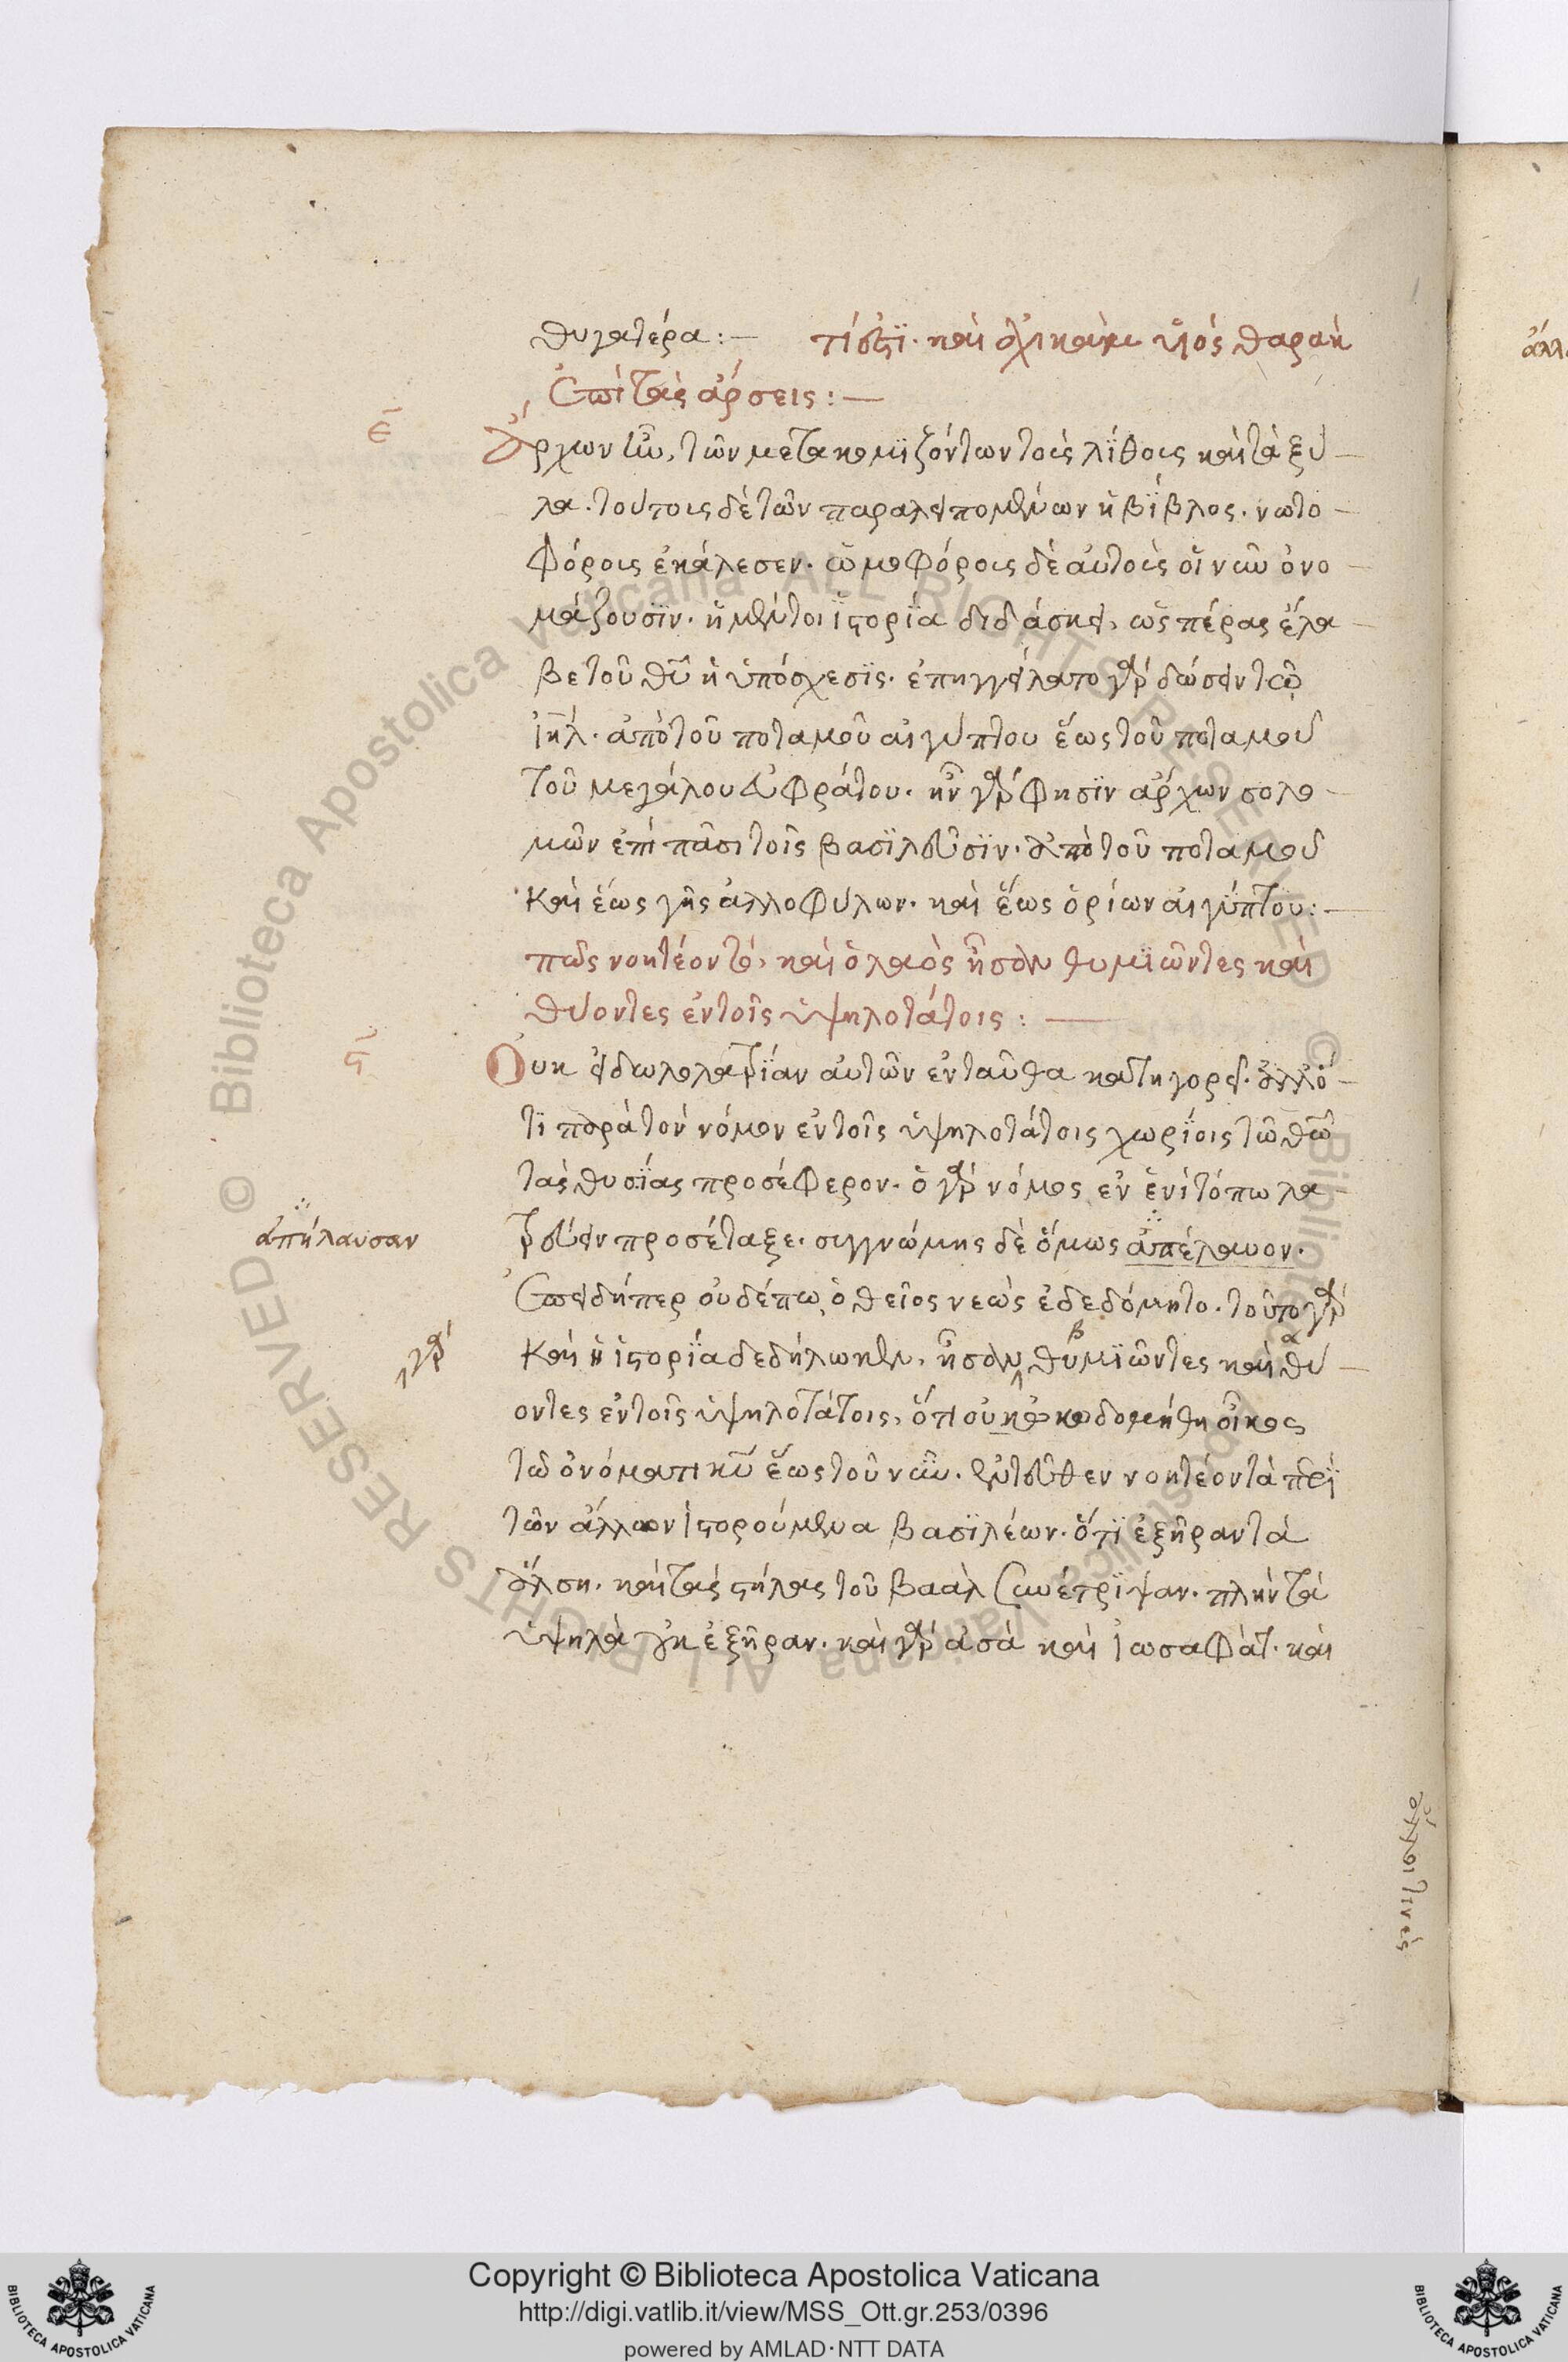 θυγατέρα :— τί ἐστϊ· καὶ ἀχικὰμ υἱὸς θαρακ
ἐπὶ τὰς ἄρσεις :—
ε̄
Ἄρχων ἦν, τῶν μετακομϊζόντων τοὺς λίθους καὶ τὰ ξύ—
λα· τούτους δὲ τῶν παραλειπομένων ἡ βίβλος· νωτο—
φόρους ἐκάλεσεν· ὠμοφόρους δὲ αὐτοὺς οἱ νῦν ὀνο—
μάζουσϊν· ἡ μέντοι ἱστορία διδάσκει, ὡς πέρας ἔλα—
βε τοῦ θῦ ἡ ὑπόσχεσϊς· ἐπηγγείλατο γὰρ δώσειν τῷ
ἰη̄λ· ἀπὸ τοῦ ποταμοῦ αἰγύπτου ἕως τοῦ ποταμοῦ
τοῦ μεγάλου εὐφράτου· ἦν γὰρ φησϊν ἄρχων σολο—
μῶν ἐπὶ πᾶσι τοῖς βασϊλεῦσϊν· ἀπὸ τοῦ ποταμοῦ
καὶ ἕως γῆς ἀλλοφύλων· καὶ ἕως ὁρίων αἰγύπτου :—
πῶς νοητέον τό, καὶ ὁ λαὸς ἦσαν θυμϊῶντες καὶ
θύοντες ἐν τοῖς ὑψηλοτάτοις :—
ς̄
Οὐκ εἰδωλολατρίαν αὐτῶν ἐνταῦθα κατηγορεῖ· ἀλλ' ὅ—
τϊ παρὰ τὸν νόμον ἐν τοῖς ὑψηλοτάτοις χωρίοις τῶ θῶ
τὰς θυσίας προσέφερον· ὁ γὰρ νόμος ἐν ἑνὶ τόπω λα—
τρεύειν προσέταξε· συγγνώμης δὲ ὅμως ἀπέλαυον·
ἀπήλαυσαν
Ἐπειδήπερ οὐδέπω ὁ θεῖος νεὼς ἐδεδόμητο· τοῦτο γὰρ
γὰρ
καὶ ἡ ἱστορία δεδήλωκεν, ἦσαν θυμϊῶντες καὶ θύ—
β α
οντες ἐν τοῖς ὑψηλοτάτοις, ὅτι οὐκ ὠκοδομήθη οἶκος
τῶ ὀνόματι κῦ ἕως τοῦ νῦν· ἐντεῦθεν νοητέον τὰ περὶ
τῶν ἄλλων ἱστορούμενα βασϊλέων· ὅτϊ ἐξῆραν τὰ
ἄλση· καὶ τὰς στήλας τοῦ βαὰλ συνέτριψαν· πλὴν τὰ
ὑψηλὰ οὐκ ἐξῆραν· καὶ γὰρ ἀσὰ καὶ ἰωσαφὰτ· καὶ
ἄλλοι τινὲς
ἀλλ
Copyright © Biblioteca Apostolica Vaticana
http://digi.vatlib.it/view/MSS_Ott.gr.253/0396
powered by AMLAD·NTT DATA
BIBLIOTECA APOSTOLICA VATICANA
BIBLIOTECA APOSTOLICA VATICANA
© Biblioteca Apostolica Vaticana ALL RIGHTS RESERVED
© Biblioteca Apostolica Vaticana ALL RIGHTS RESERVED